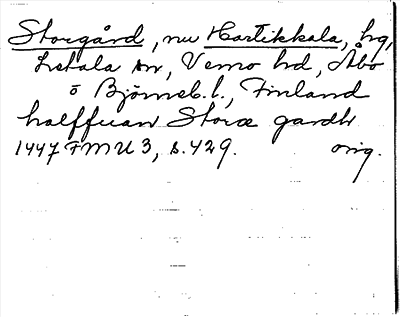 Storgård, nu Hartikkala, hg,
Letala sn, Vemo hd, Åbo
o Björneb. l., Finland
halffuan Storæ gardh
1447 FMU 3, s. 429. orig.